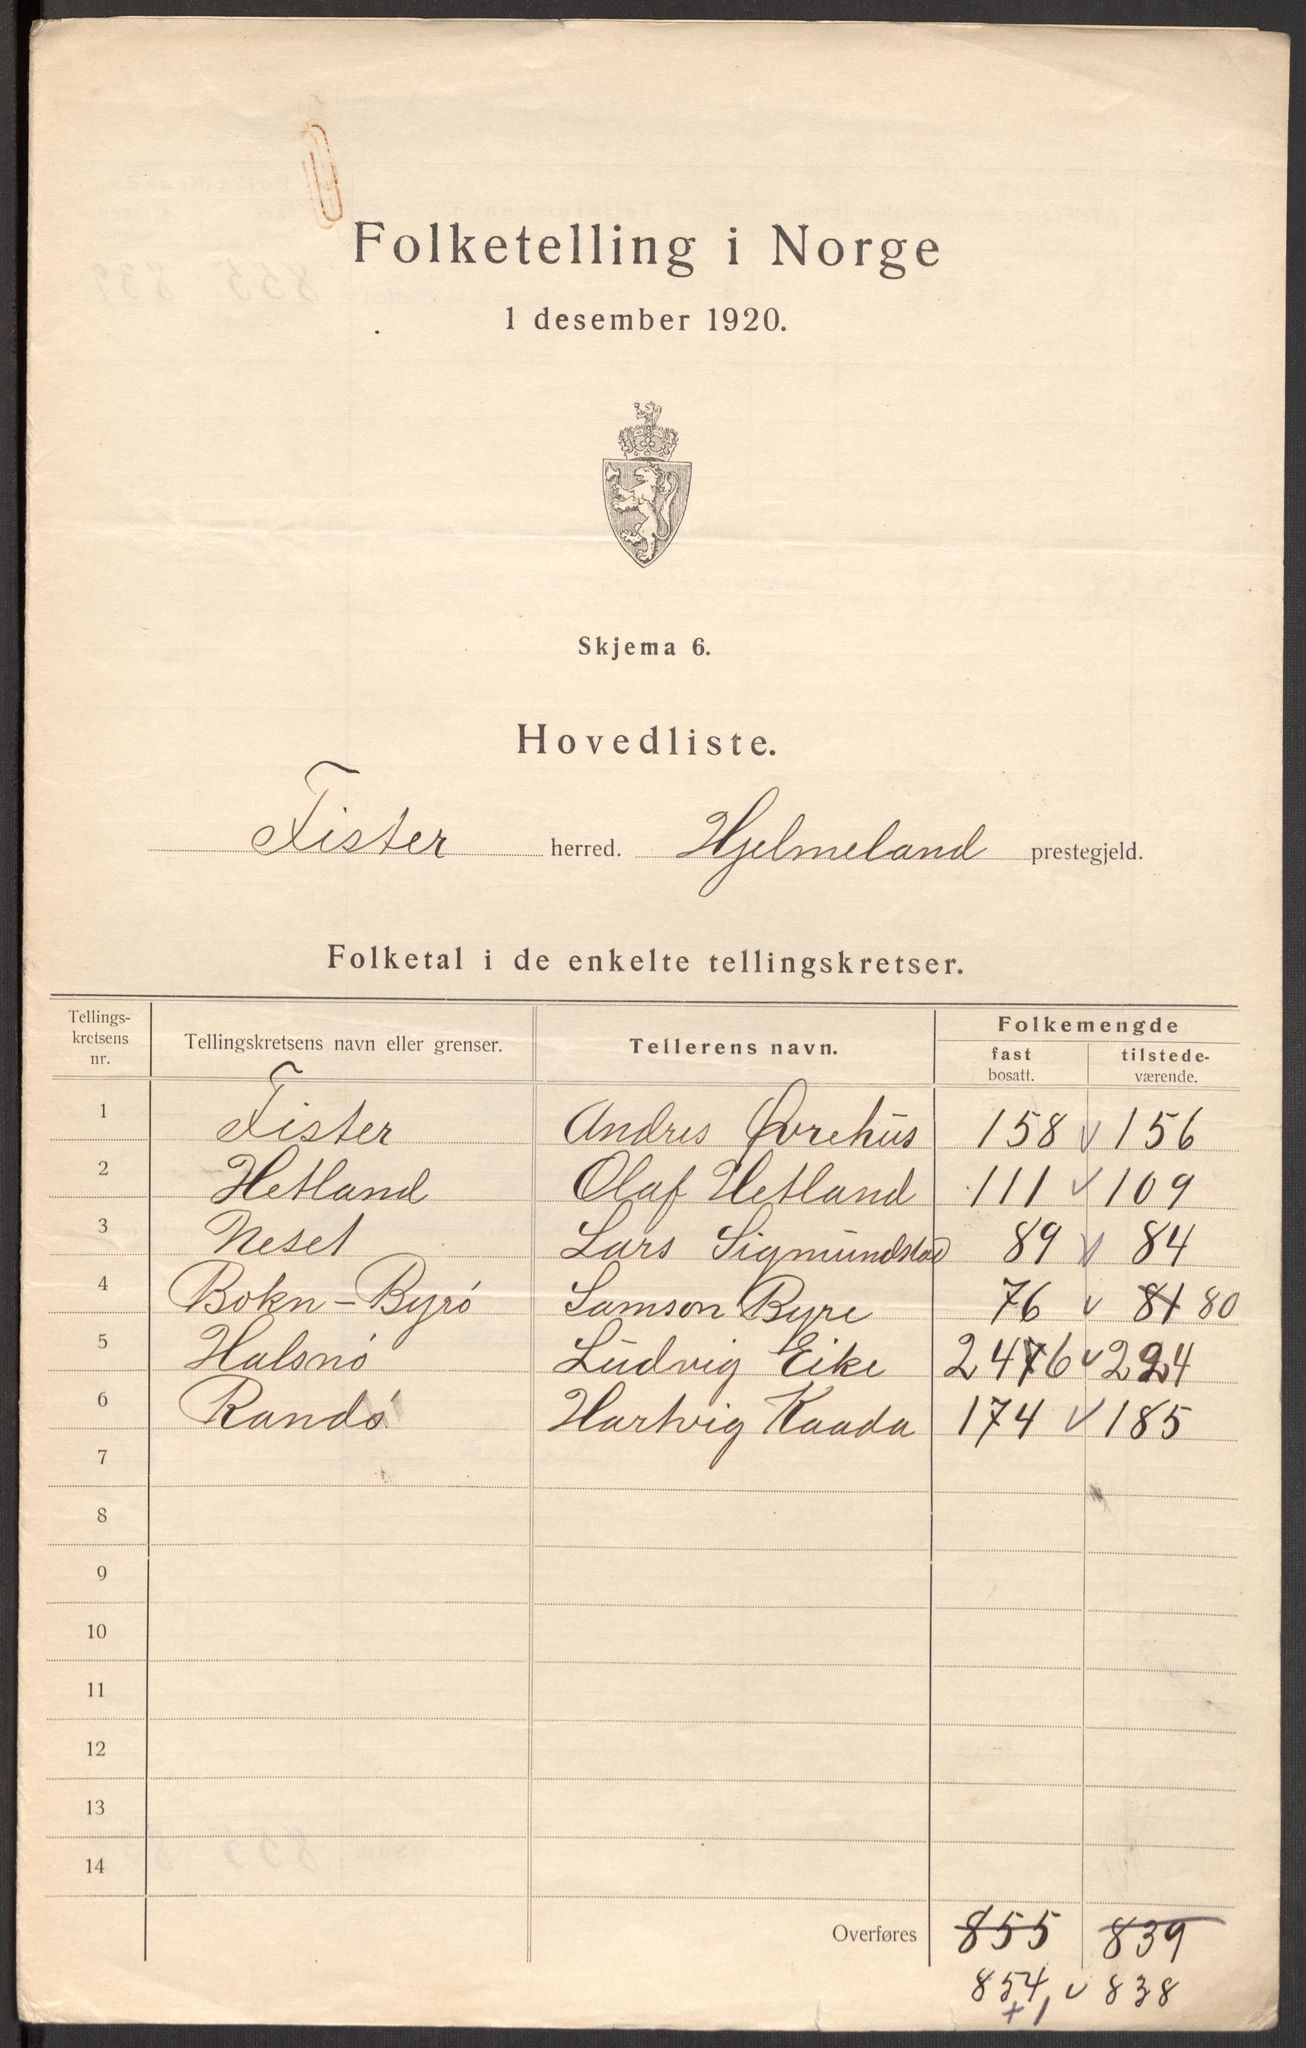 Folketelling i Norge
1 desember 1920.
Skjema 6.
Hovedliste.
Fister herred. Hjelmeland prestegjeld.
Folketal i de enkelte tellingskretser.
Tellings-
kretsens
nr.
Tellingskretsens navn eller grenser.
Tellerens navn.
Folkemengde
fast
bosatt.
tilstede-
værende.
1 Fister Andres Øvrehus 158 v 156
2 Hetland Olaf Hetland 111 v 109
3 Neset Lars Sigmundstad 89 v 84
4 Bokn-Byrö Samson Byre 76 v 81 80
5 Halsnö Ludvig Eike 2476 v 224
6 Randö Hartvig Kaada 174 v 185
7
8
9
10
11
12
13
14
Overføres 855 839
854 v 838
+1